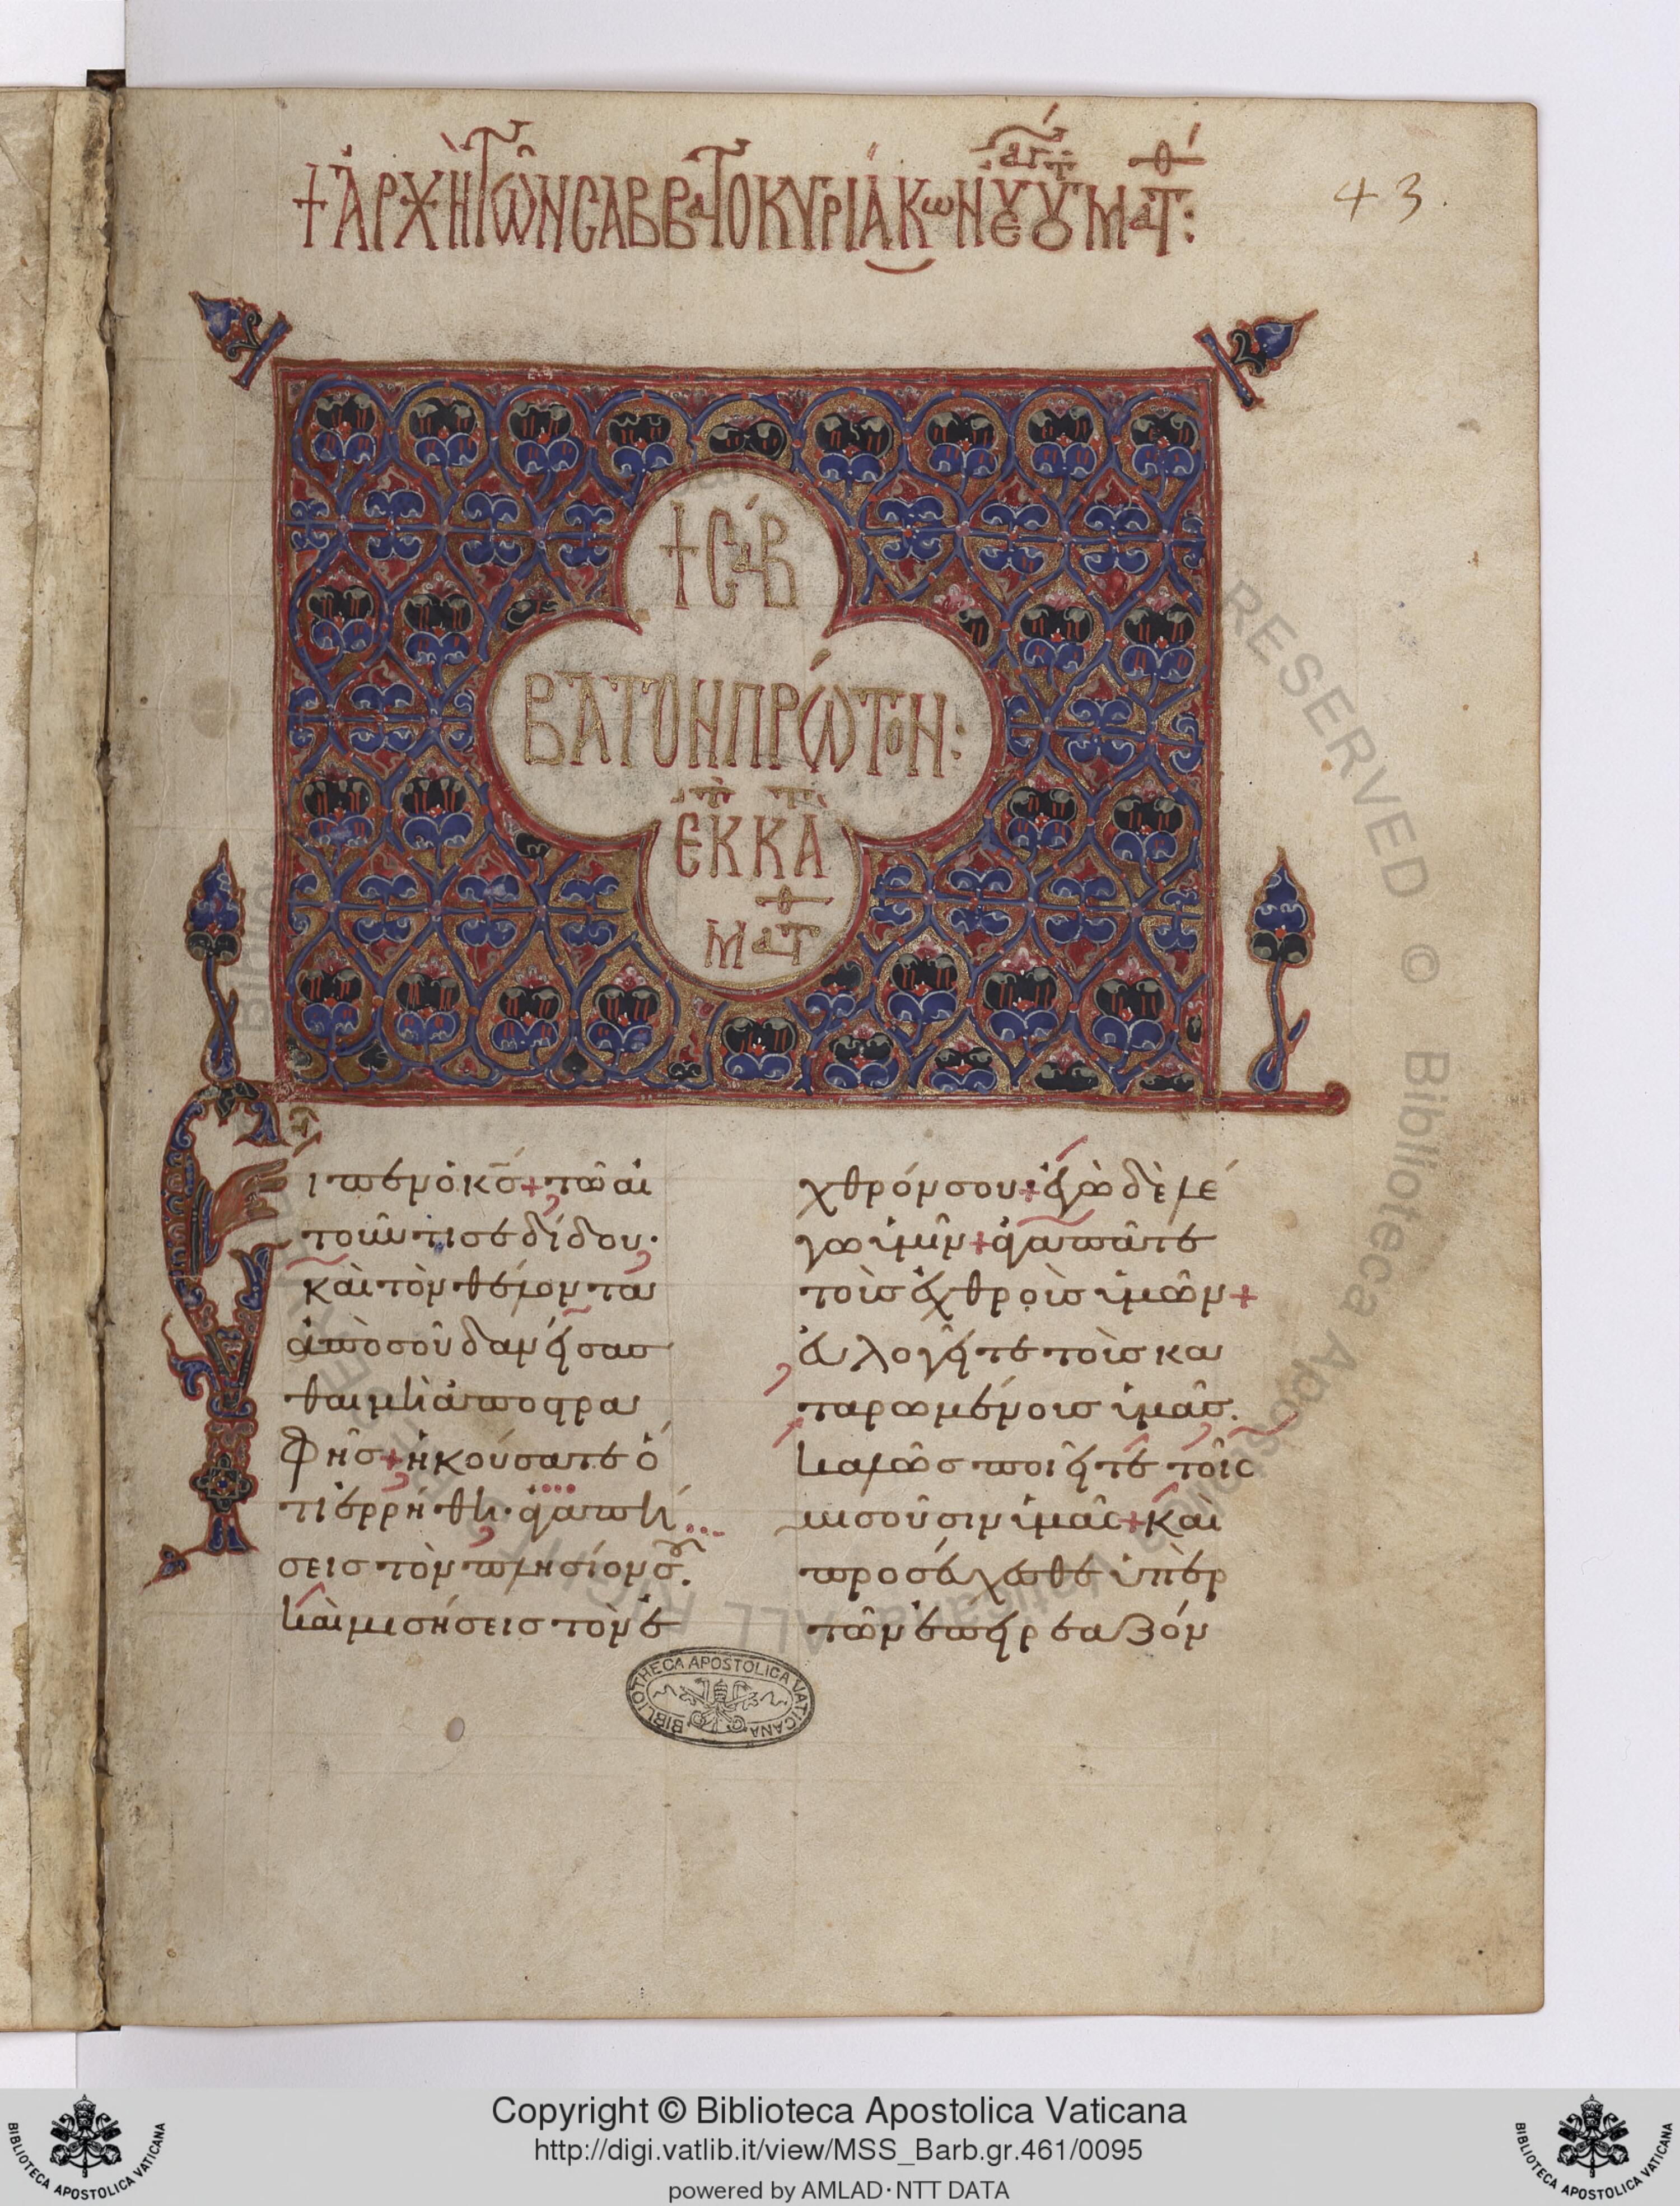 + ἈΡΧῊ ΤΩ͂Ν CΑΒΒΑΤΟΚΥΡΙΆΚωΝ
43.
+ CάΒ
ΒΑΤΟΝ ΠΡΏΤΟΝ:
ΕΚ Κ Α
ΜΑΤ
ἶπεν ὁ κσ̄ + τῶ αἰ
τοῦντι σε δίδου·
καὶ τὸν θέλοντα
ἀπὸ σοῦ δανήσασ
θαι μὴ ἀποστρα
φῆσ + ἠκούσατε ὁ
τι ἐρρήθη· ἀγαπή
σεισ τὸν πλησίον σου.
καὶ μισήσεισ τὸν ἐ
χθρόν σου + ἐγὼ δὲ λέ
γω ὑμῖν + ἀγαπᾶτε
τοὺσ ἐχθροὺσ ὑμῶν +
εὐλογεῖτε τοὺσ κα
ταρωμένουσ ὑμᾶσ.
καλῶσ ποιεῖτε τοῖσ
μισοῦσιν ὑμᾶσ + καὶ
προσεύχεσθε ὑπὲρ
τῶν ἐπηρεαζόν
BIBLIOTHECA APOSTOLICA VATICANA
Copyright © Biblioteca Apostolica Vaticana
http://digi.vatlib.it/view/MSS_Barb.gr.461/0095
powered by AMLAD·NTT DATA
BIBLIOTECA APOSTOLICA VATICANA
BIBLIOTECA APOSTOLICA VATICANA